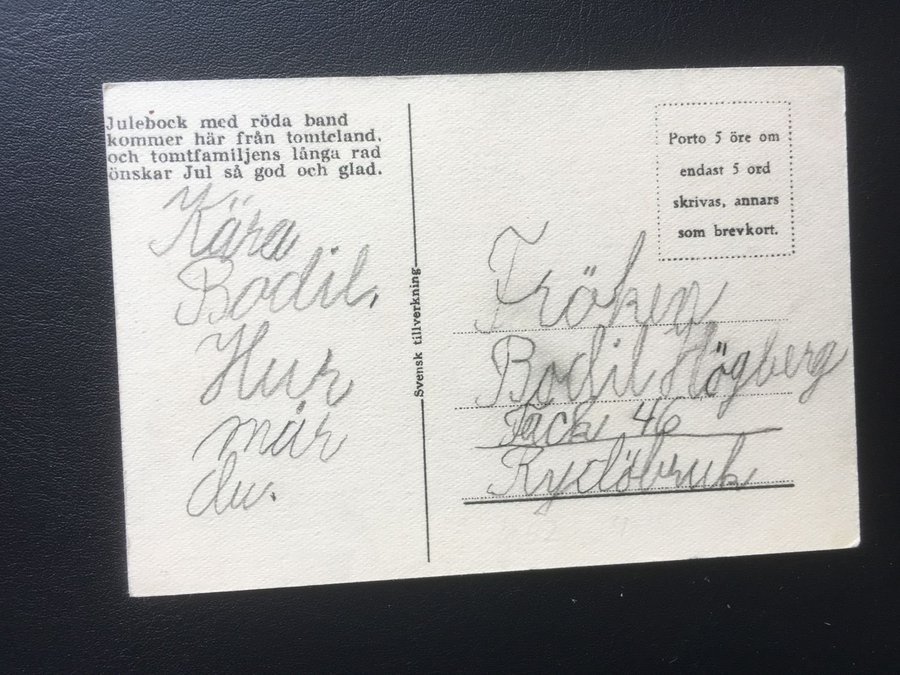 Julebock med röda band
kommer här från tomteland,
och tomtfamiljens långa rad
önskar Jul så god och glad.
Kära
Bodil.
Hur
mår
du.
Svensk tillverkning
Porto 5 öre om
endast 5 ord
skrivas, annars
som brevkort.
Fröken
Bodil Högberg
Fack 46
Rydöbruk